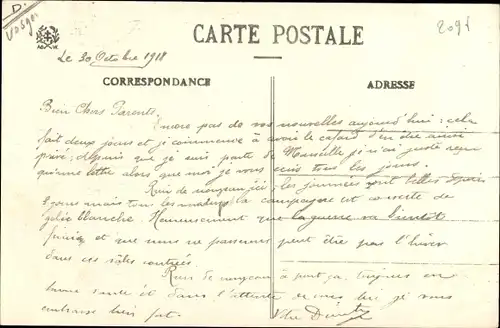 D.
Vosges
CARTE POSTALE
2095
Le 30 Octobre 1918
CORRESPONDANCE
ADRESSE
Bien Chers Parents
Encore pas de vos nouvelles aujourd'hui : cela
fait deux jours et je commence à avoir le cafard d'en être ainsi
privé ; depuis que je suis parti de Marseille je n'ai juste reçu
qu'une lettre alors que moi je vous écris tous les jours.
Rien de nouveau ici ; les journées sont belles depuis
jours mais tous les matins la campagne est couverte de
gelée blanche. Heureusement que la guerre va bientôt
finir et que nous ne passerons peut être pas l'hiver
dans ces sales contrées.
Rien de nouveau à part ça, toujours en
bonne santé et dans l'attente de vous lire je vous
embrasse bien fort. Votre